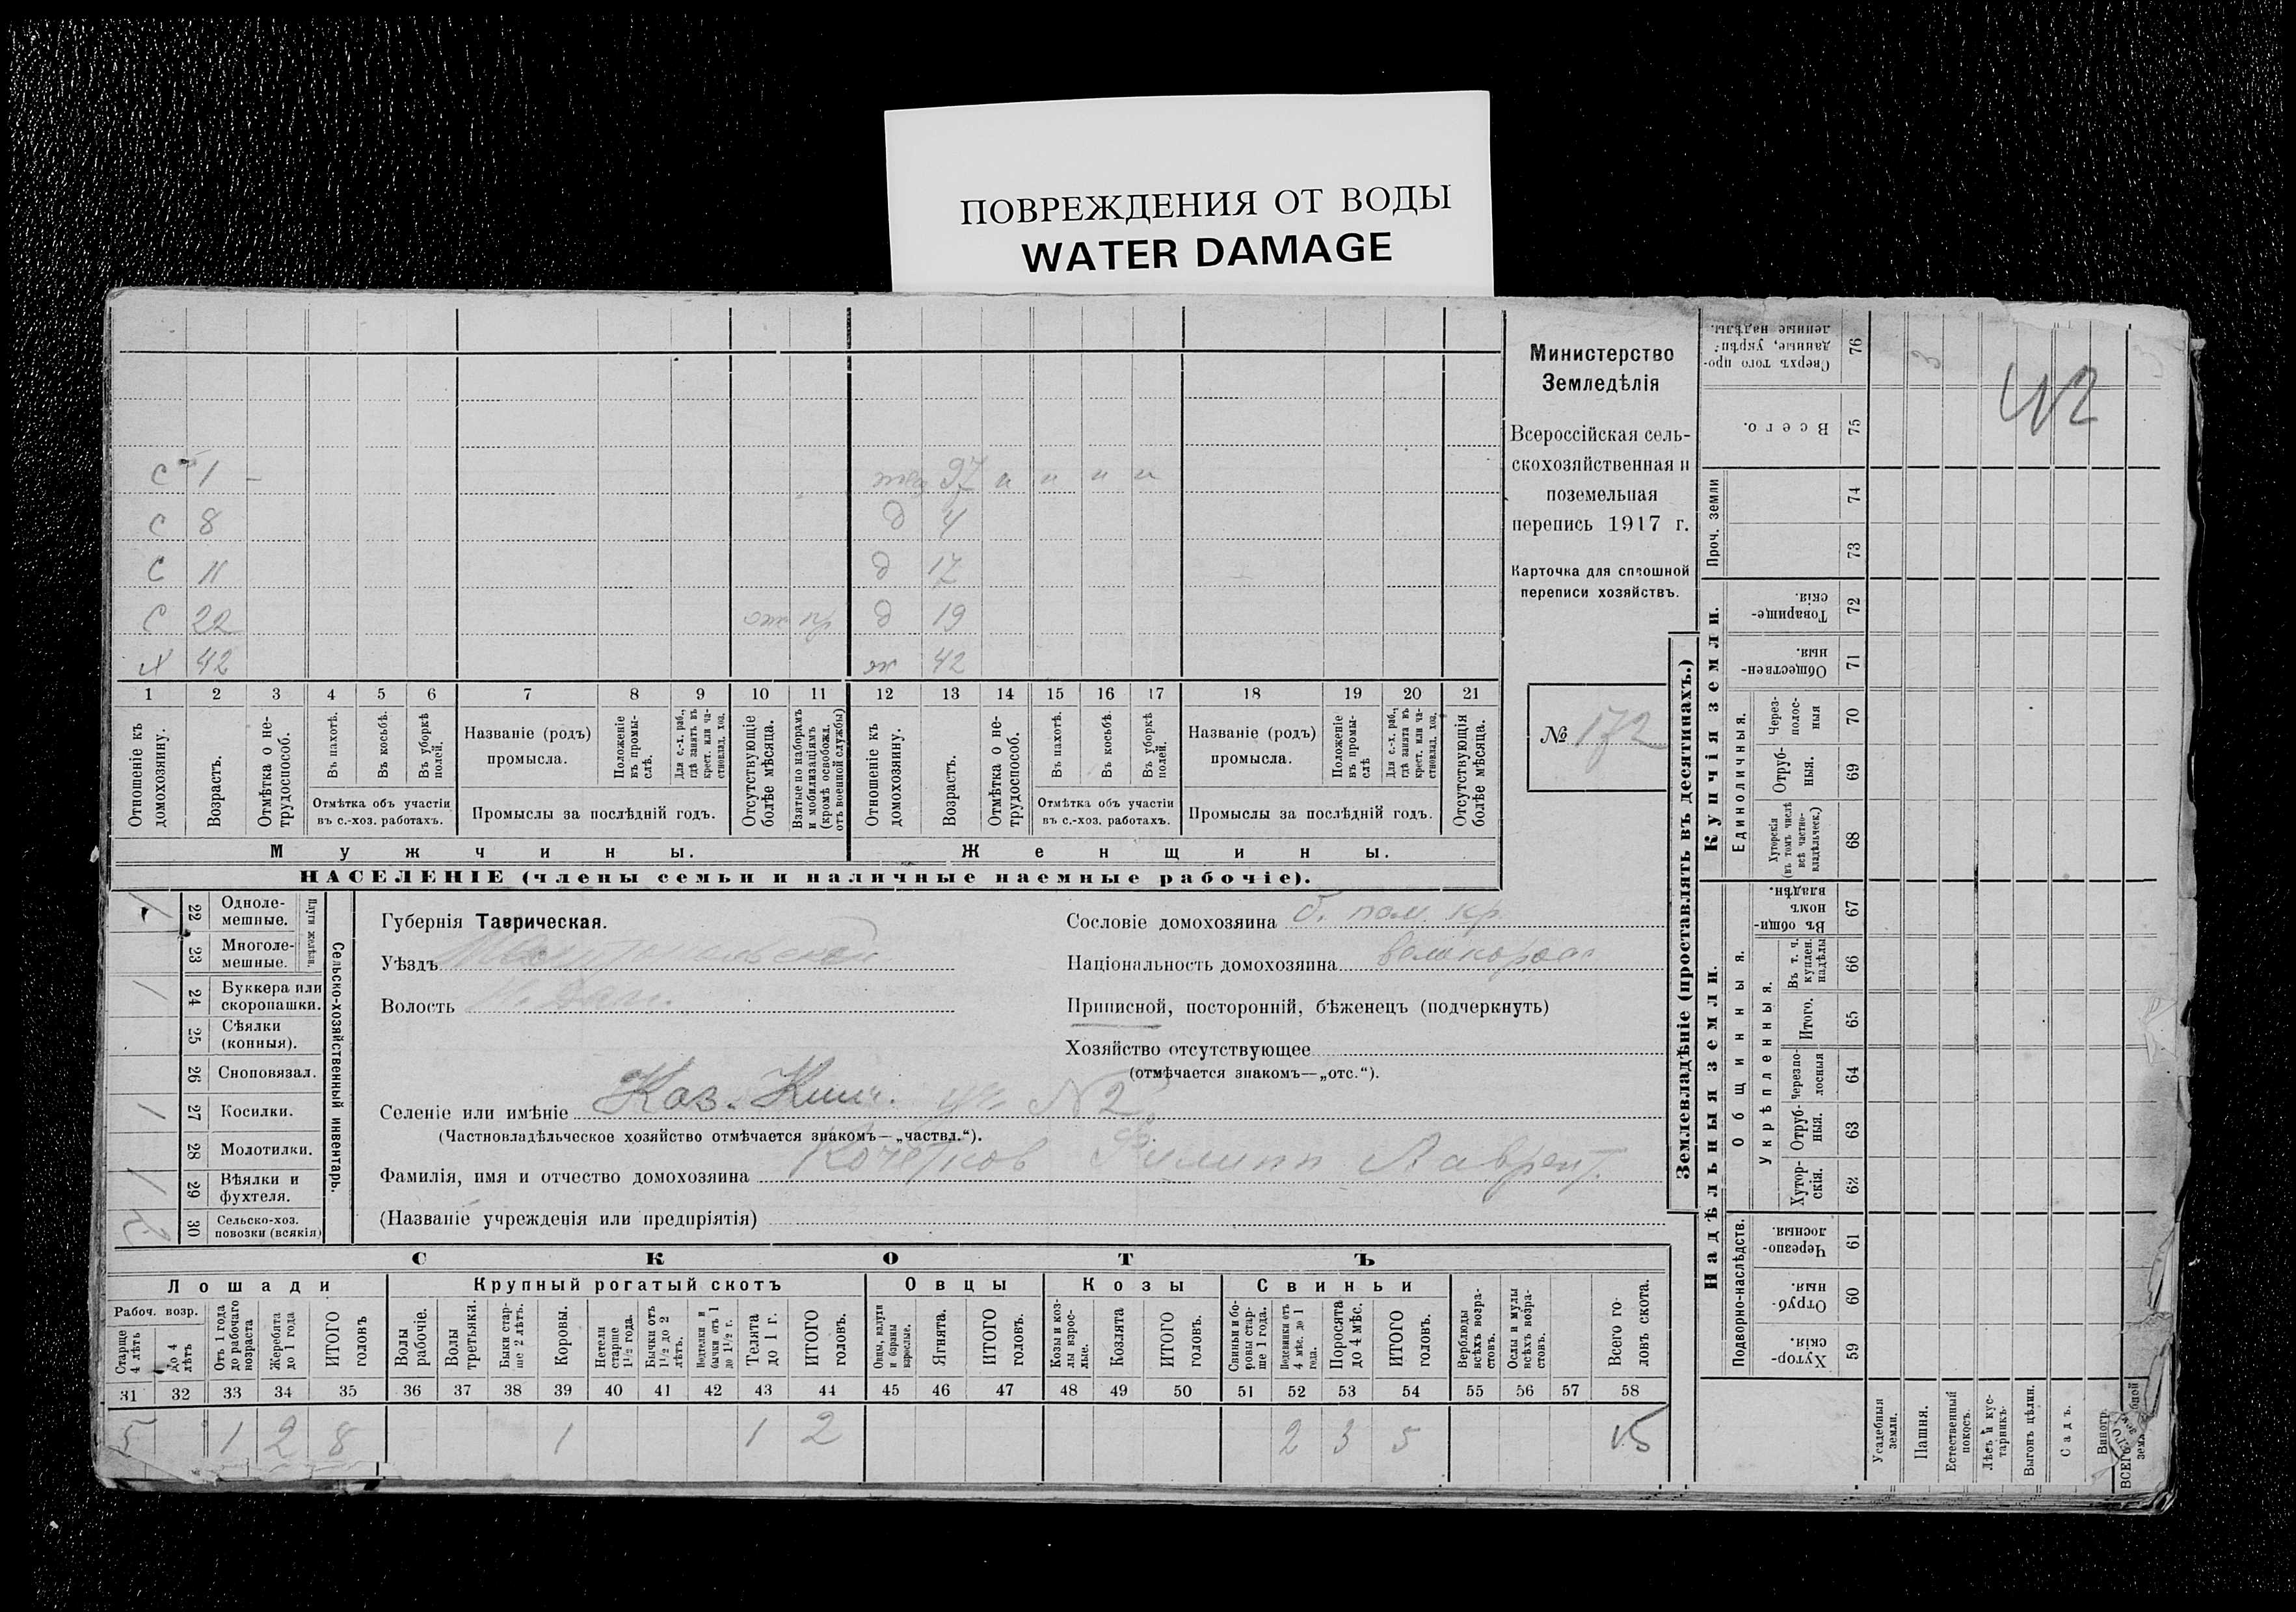 ПОВРЕЖДЕНИЯ ОТ ВОДЫ
WATER DAMAGE
С 1 -
97 и и и и
С 8
д 4
С 11
д 17
С 22
д 19
Х 42
ж 42
1 2 3 4 5 6 7 8 9 10 11 12 13 14 15 16 17 18 19 20 21
Отношеніе къ домохозяину.
Возрастъ.
Отмѣтка о не-трудоспособ.
Въ пахотѣ.
Въ косьбѣ.
Въ уборкѣ полей.
Отмѣтка объ участіи
въ с.-хоз. работахъ.
Названіе (родъ)
промысла.
Положеніе въ промы-слѣ.
Для с.-х. раб., гдѣ занятъ въ крест. или ча-стновлад. хоз.
Промыслы за послѣдній годъ.
Отсутствующіе болѣе мѣсяца.
Взятые по наборамъ и мобилизаціямъ (кромѣ освобожд. отъ военной службы)
Отношеніе къ домохозяину.
Возрастъ.
Отмѣтка о не-трудоспособ.
Въ пахотѣ.
Въ косьбѣ.
Въ уборкѣ полей.
Отмѣтка объ участіи
въ с.-хоз. работахъ.
Названіе (родъ)
промысла.
Положеніе въ промы-слѣ
Для с.-х. раб., гдѣ занята въ крест. или ча-стновлад. хоз.
Промыслы за послѣдній годъ.
Отсутствующія болѣе мѣсяца.
Мужчины.
Женщины.
НАСЕЛЕНІЕ (члены семьи и наличные наемные рабочіе).
Министерство
Земледѣлія
Всероссійская сель-
скохозяйственная и
поземельная
перепись 1917 г.
Карточка для сплошной
переписи хозяйствъ.
№ 172
Сельско-хозяйственный инвентарь.
Плуги желѣзн.
22 Одноле-мешные.
23 Многоле-мешные.
24 Буккера или скоропашки.
25 Сѣялки (конныя).
26 Сноповязал.
27 Косилки.
28 Молотилки.
29 Вѣялки и фухтеля.
30 Сельско-хоз. повозки (всякія)
Губернія Таврическая.
Уѣздъ
Волость
Сословіе домохозяина б. пом. кр.
Національность домохозяина великоросс
Приписной, посторонній, бѣженецъ (подчеркнуть)
Хозяйство отсутствующее
(отмѣчается знакомъ—„отс.“).
Селеніе или имѣніе Каз. №2
(Частновладѣльческое хозяйство отмѣчается знакомъ—„частвл.“).
Фамилія, имя и отчество домохозяина Кочетков Филипп Лаврент.
(Названіе учрежденія или предпріятія)
СКОТЪ
Лошади
Крупный рогатый скотъ
Овцы
Козы
Свиньи
Рабоч. возр.
Старше 4 лѣтъ
До 4 лѣтъ
Отъ 1 года до рабочаго возраста
Жеребята до 1 года
ИТОГО головъ
Волы рабочіе.
Волы третьяки.
Быки стар-ше 2 лѣтъ.
Коровы.
Нетели старше 1½ года.
Бычки отъ 1½ до 2 лѣтъ.
бычки отъ 1 до 1½ г.
Телята до 1 г.
ИТОГО головъ.
Овцы, валухи и бараны взрослые.
Ягнята.
ИТОГО головъ.
Козы и коз-лы взрос-лые.
Козлята
ИТОГО головъ.
Свиньи и бо-ровы стар-ше 1 года.
Подсвинки отъ 4 мѣс. до 1 года.
Поросята до 4 мѣс.
ИТОГО головъ.
Верблюды всѣхъ возра-стовъ.
Ослы и мулы всѣхъ возра-стовъ.
Всего го-ловъ скота.
31 32 33 34 35 36 37 38 39 40 41 42 43 44 45 46 47 48 49 50 51 52 53 54 55 56 57 58
5 1 2 8 1 1 2 2 3 5 15
Землевладѣніе (проставлять въ десятинахъ.)
Купчія земли.
Надѣльныя земли.
76 Сверхъ того про-данные, укрѣп-ленные надѣлы.
75 Всего.
Проч. земли
74
73
72 Товарище-скія.
71 Обществен-ныя.
Единоличныя.
70 Через-полос-ныя
69 Отруб-ныя.
68 Хуторскія (въ томъ числѣ всѣ частно-владѣльческ.)
Общинныя.
67 Въ общин-номъ владѣн.
66 Въ т. ч. куплен. надѣлы
Укрѣпленныя.
65 Итого.
64 черезпо-лосныя
63 Отруб-ныя.
62 Хутор-скія.
Подворно-наслѣдств.
61 Черезпо-лосныя.
60 Отруб-ныя.
59 Хутор-скія.
Усадебныя земли.
Пашня.
Естественный покосъ.
Лѣсъ и кус-тарникъ.
Выгонъ цѣлин.
Садъ.
Виногр.